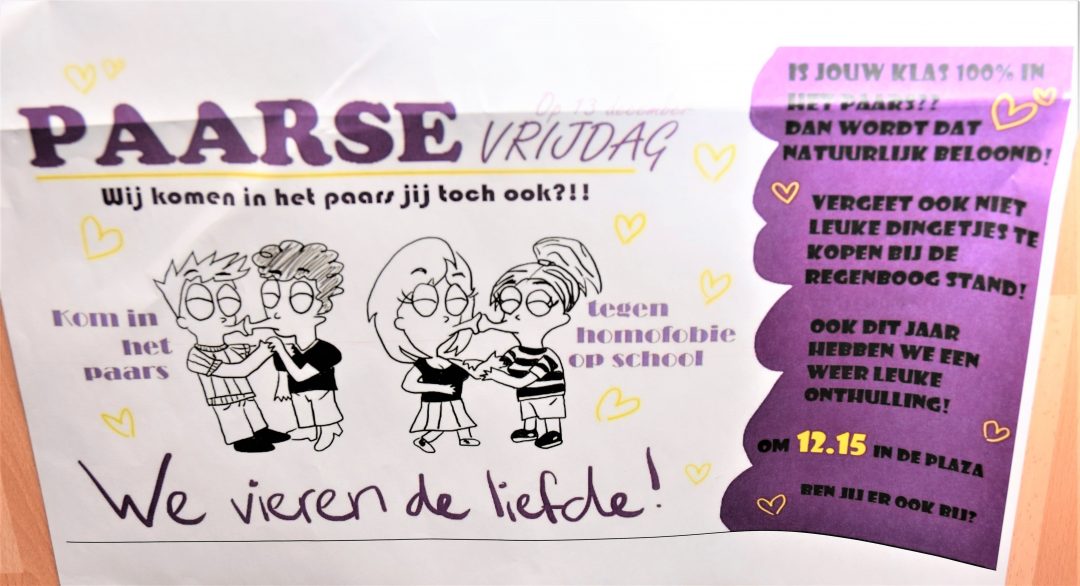 Op 13 december
PAARSE VRIJDAG
Wij komen in het paars jij toch ook?!!
Kom in
het
paars
tegen
homofobie
op school
We vieren de liefde!
IS JOUW KLAS 100% IN
HET PAARS??
DAN WORDT DAT
NATUURLIJK BELOOND!
VERGEET OOK NIET
LEUKE DINGETJES TE
KOPEN BIJ DE
REGENBOOG STAND!
OOK DIT JAAR
HEBBEN WE EEN
WEER LEUKE
ONTHULLING!
OM 12.15 IN DE PLAZA
BEN JIJ ER OOK BIJ?